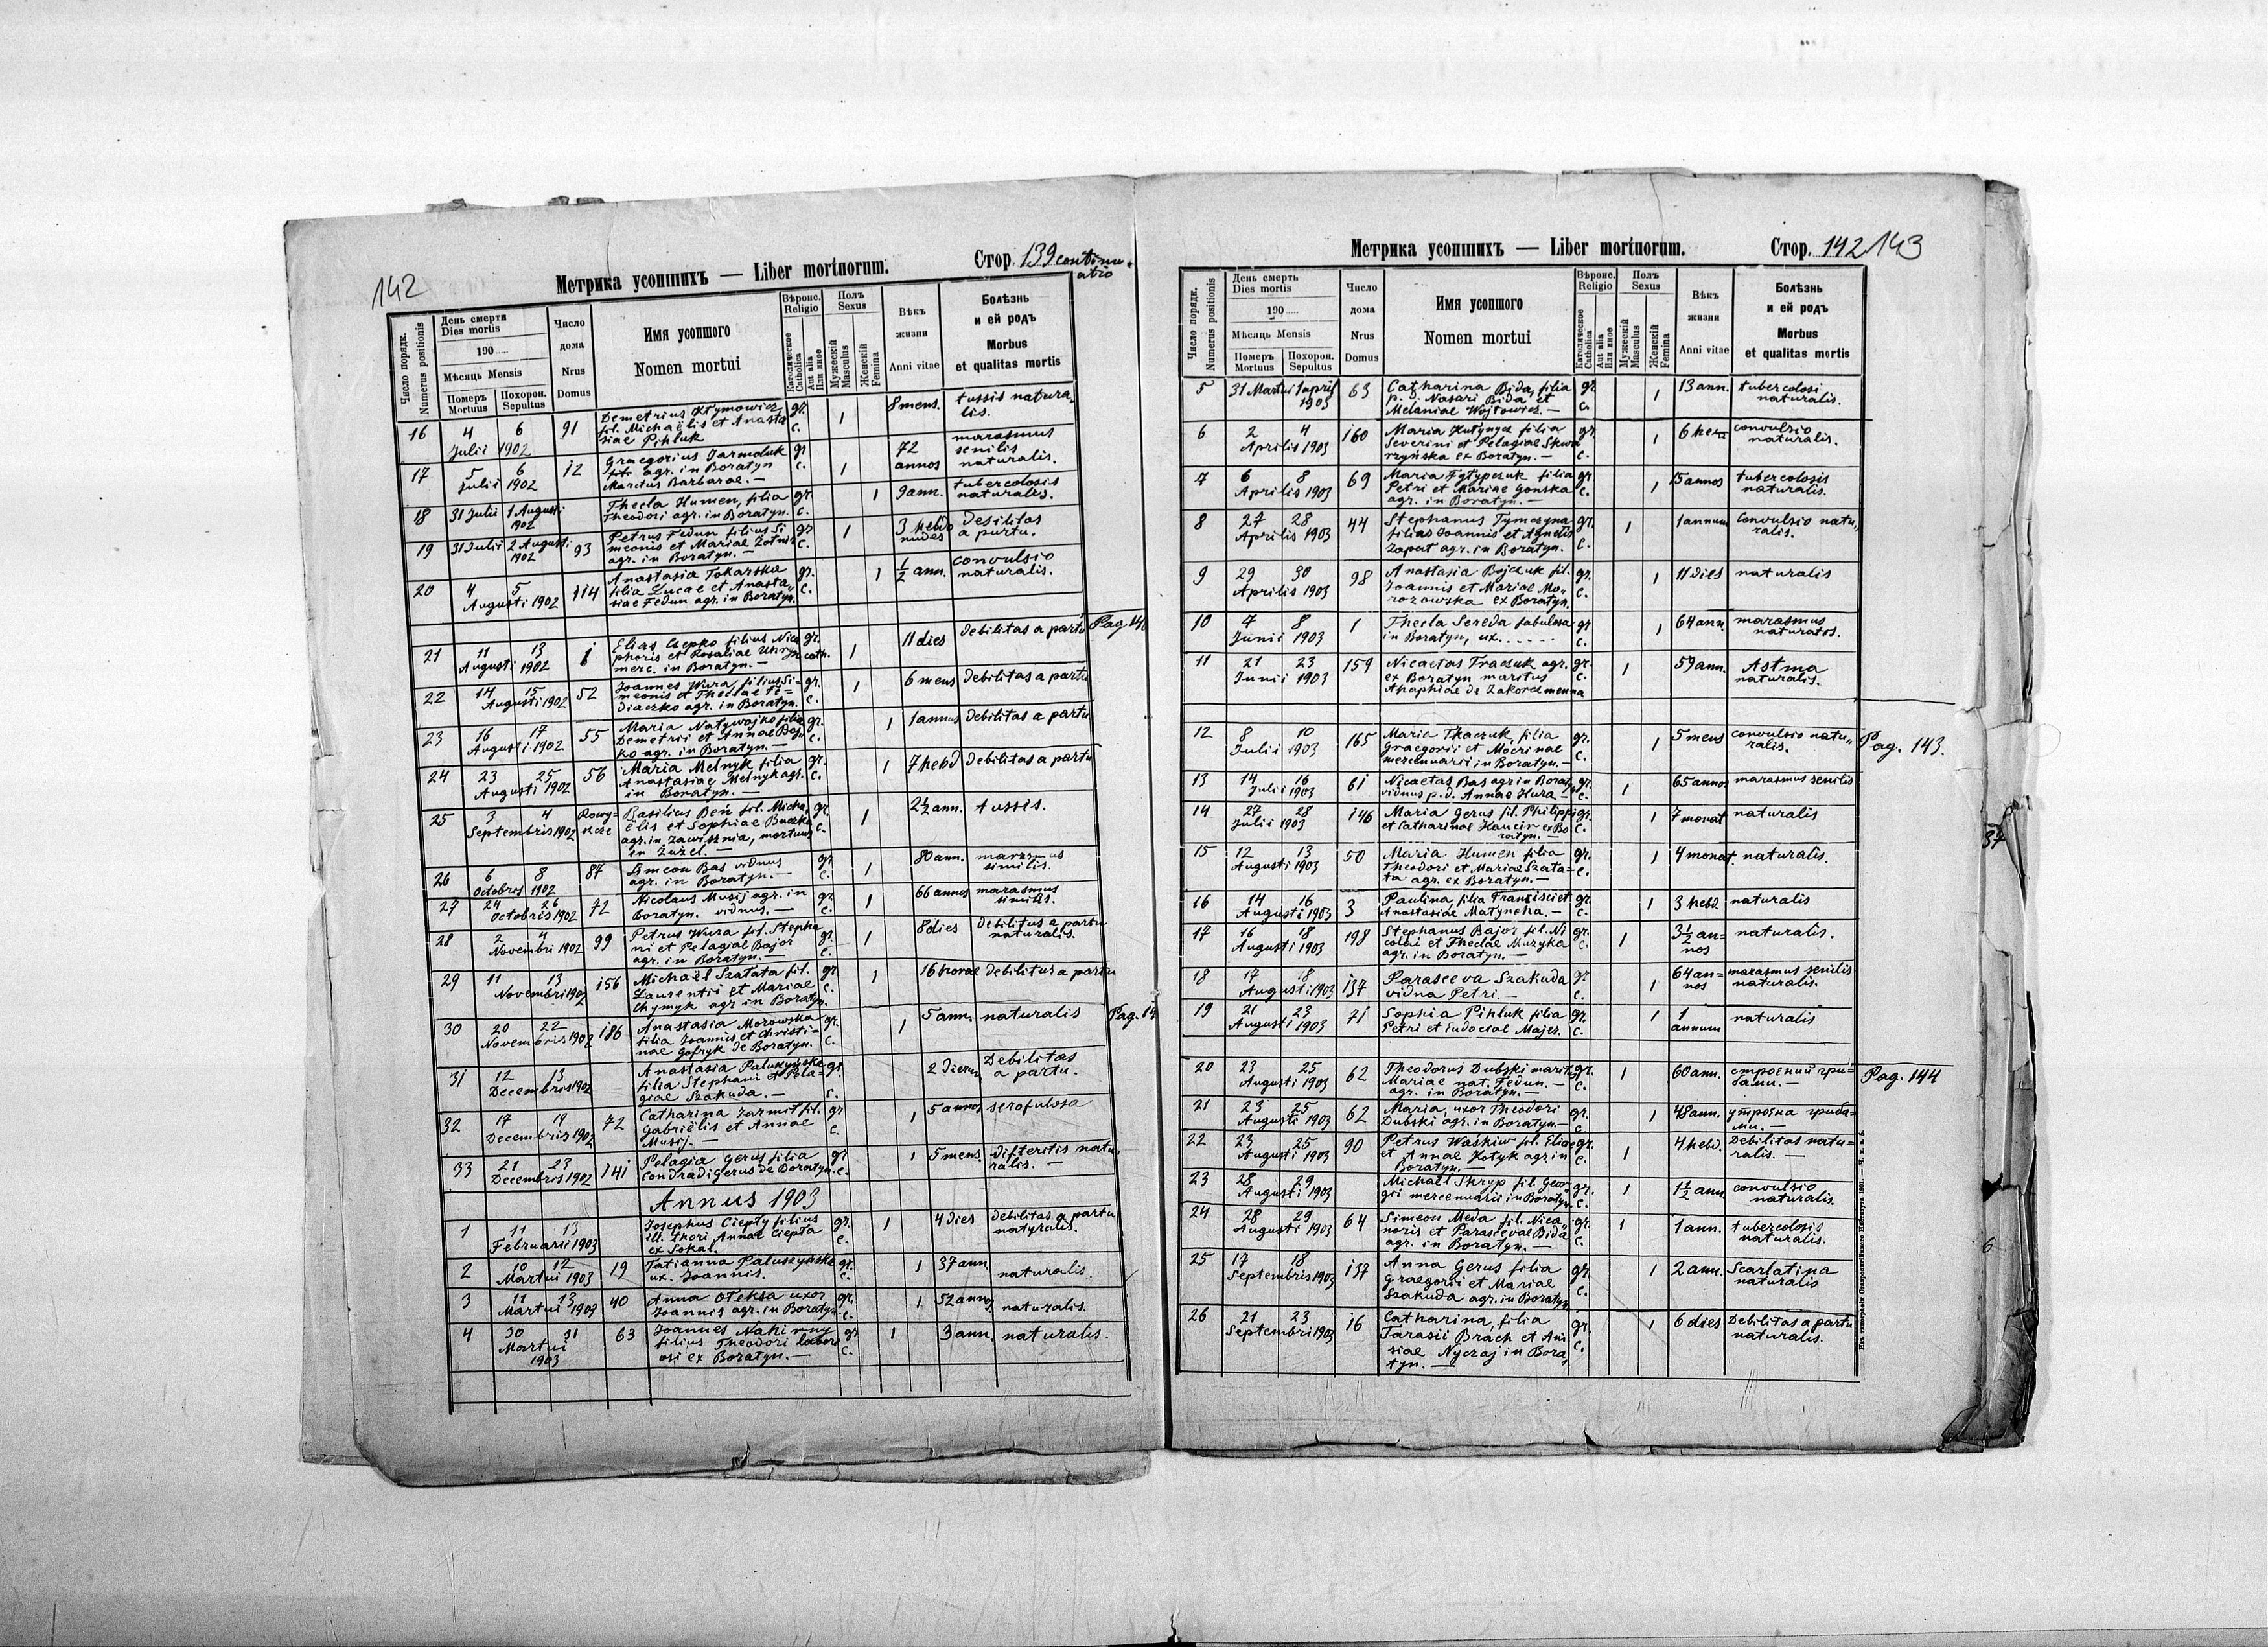 142
Метрика усопшихъ — Liber mortuorum.
Стор. 139 continu-
atio
Число порядк.
Numerus positionis
День смерти
Dies mortis
190
Мѣсяць Mensis
Померъ
Mortuus
Похорон.
Sepultus
Число
дома
Nrus
Domus
Имя усопшого
Nomen mortui
Вѣроис.
Religio
Католическое
Catholica
Aut alia
Или иное
Полъ
Sexus
Мужескій
Masculus
Женскій
Femina
Вѣкъ
жизни
Anni vitae
Болѣзнь
и ей родъ
Morbus
et qualitas mortis
16 4 6 Julii 1902 91 Demetrius Kłymowicz gr. 1 8 mens. tussis natura-
fil. Michaëlis et Anasta c. lis.
siae Pihluk
17 5 6 Julii 1902 12 Graegorius Jarmoluk gr 1 72 marasmus
agr. in Boratyn c. annos senilis
Maritus Barbarae. — naturalis.
18 31 Julii 1 Augusti 1902 Thecla Humen, filia gr. 1 9 ann. tubercolosis
Theodori agr. in Boratyn. c. naturalis.
19 31 Julii 2 Augusti 1902 93 Petrus Fedun filius Si gr 1 3 hebdo debilitas
meonis et Mariae c. a partu.
agr. in Boratyn. —
20 4 5 Augusti 1902 114 Anastasia Tokarska gr. 1 ½ ann. convulsio
filia Lucae et Anasta c. naturalis.
siae Fedun agr. in Boratyn.
21 11 13 Augusti 1902 1 Elias Czepko filius Nice gr. 1 11 dies debilitas a partu
phoris et Rosaliae cath.
merc. in Boratyn. —
22 14 15 Augusti 1902 52 Joannes Wura, filius Si- gr. 1 6 mens debilitas a partu
meonis et Theclae Fe- c.
diaczko agr. in Boratyn.
23 16 17 Augusti 1902 55 Maria Natywajko filia gr. 1 1 annus debilitas a partu
Demetrii et Annae Boj- c.
ko agr. in Boratyn. —
24 23 25 Augusti 1902 56 Maria Melnyk filia gr. 1 7 hebd debilitas a partu
Anastasiae Melnyk agr. c.
in Boratyn. —
25 3 4 Septembris 1902 Basilius Beń fil. Micha gr. 1 2½ ann. tussis.
ëlis et Sophiae Buczko c.
agr. in Zawisznia, mortuus
in Żużel. —
26 6 8 Octobris 1902 87 Simeon Bas vidnus gr 1 80 ann. marasmus
agr. in Boratyn. — c. similis.
27 24 26 Octobris 1902 72 Nicolaus Musij agr. in gr 1 66 annos marasmus
Boratyn. vidnus. — c. similis.
28 2 4 Novembri 1902 99 Petrus Wura fil. Stepha gr 1 8 dies debilitas a partu
ni et Pelagiae Bajor c. naturalis.
agr. in Boratyn. —
29 11 13 Novembri 1902 156 Michaël Szałata fil. gr. 1 16 horae debilitas a partu
Laurentii et Mariae c.
Chymyk agr in Boratyn.
30 20 22 Novembris 1902 186 Anastasia Morowska gr. 1 5 ann. naturalis
filia Joannis et Christi- c.
nae Gofryk de Boratyn.
31 12 13 Decembris 1902 Anastasia gr. 2 dierum Debilitas
filia Stephani et Pela- c. a partu.
giae Szakuda. —
32 17 19 Decembris 1902 72 Catharina Jarmił fil. gr 1 5 annos scrofulosa
Gabriëlis et Annae c.
Musij. —
33 21 23 Decembris 1902 141 Pelagia Gerus filia gr 1 5 mens. difteritis natu-
Condradi Gerus de Boratyn. c. ralis. —
Annus 1903
1 11 13 Februarii 1903 Josephus Ciepły filius gr. 1 4 dies debilitas a partu
ill. thori Annae Ciepła c. natyralis.
ex Sokal.
2 10 12 Martii 1903 19 Tatianna Paluszyńska gr. 1 37 ann.
ux. Joannis. c. naturalis.
3 11 13 Martii 1903 40 Anna Ołeksa uxor gr. 1 52 annos
Joannis agr. in Boratyn. c. naturalis.
4 30 31 Martii 1903 63 Joannes Nahirny gr 1 3 ann. naturalis.
filius Theodori labori c.
osi ex Boratyn. —
Метрика усопшихъ — Liber mortuorum.
Стор. 142 143
Число порядк.
Numerus positionis
День смерть
Dies mortis
190
Мѣсяць Mensis
Померъ
Mortuus
Похорон.
Sepultus
Число
дома
Nrus
Domus
Имя усопшого
Nomen mortui
Вѣроис.
Religio
Католическое
Catholica
Aut alia
Или иное
Полъ
Sexus
Мужескій
Masculus
Женскій
Femina
Вѣкъ
жизни
Anni vitae
Болѣзнь
и ей родъ
Morbus
et qualitas mortis
5 31 Martii 1 april 1903 63 Catharina Bida, filia gr. 1 13 ann. tubercolosi
p. d. Nasari Bida et c. naturalis.
Melaniae Wojtowicz. —
6 2 4 Aprilis 1903 160 Maria Kutynycz filia gr. 1 6 convulsio
Severini et Pelagiae Skwa c. naturalis.
rzyńska ex Boratyn. —
7 6 8 Aprilis 1903 69 Maria Fyłypczuk filia gr. 1 15 annos tubercolosis
Petri et Mariae Gonska c. naturalis.
agr. in Boratyn. —
8 27 28 Aprilis 1903 44 Stephanus Tymczyna gr. 1 1 annum convulsio natu-
filias Joannis et Agnetis c. ralis.
Zapat agr. in Boratyn.
9 29 30 Aprilis 1903 98 Anastasia Bojczuk fil. gr. 1 11 dies naturalis
Joannis et Mariae Mo- c.
rozowska ex Boratyn.
10 7 8 Junii 1903 1 Thecla Sereda fabulosa gr 1 64 ann. marasmus
in Boratyn, ux. . . . . . c. naturalis.
11 21 23 Junii 1903 159 Nicaetas Traczuk agr. gr. 1 59 ann. Astma
ex Boratyn maritus c. naturalis.
Ahaphiae de Zakordmenna
12 8 10 Julii 1903 165 Maria Tkaczuk, filia gr. 1 5 mens convulsio natu- Pag. 143.
Graegorii et Mocrinae c. ralis.
mercenuarii in Boratyn. —
13 14 16 Julii 1903 61 Nicaetas Bas agr in Borat. gr. 1 65 annos marasmus senilis
vidnus p. d. Annae Hura — c.
14 27 28 Julii 1903 146 Maria Gerus fil. Philippi gr. 1 7 monat naturalis
et Catharinae Hancir ex Bo c.
ratyn. —
15 12 13 Augusti 1903 50 Maria Humen filia gr. 1 4 monat. naturalis.
Theodori et Mariae Szała- c.
ta agr. ex Boratyn. —
16 14 16 Augusti 1903 3 Paulina, filia Francisci et gr. 1 3 hebd naturalis
Anastasiae Matyncha. — c.
17 16 18 Augusti 1903 198 Stephanus Bajor fil. Ni gr. 1 3½ an- naturalis.
colai et Theclae Muzyka c. nos
agr. in Boratyn. —
18 17 18 Augusti 1903 137 Parasceva Szakuda gr. 1 64 an- marasmus senilis
vidna Petri. — c. nos naturalis.
19 21 23 Augusti 1903 71 Sophia Pihluk filia gr. 1 1 naturalis
Petri et Eudociae Majer. c. annum
20 23 25 Augusti 1903 62 Theodorus Dubski maritus gr. 1 60 ann. строєний гри- Pag. 144
Mariae nat. Fedun. — c. бами. —
agr. in Boratyn. —
21 23 25 Augusti 1903 62 Maria, uxor Theodori gr. 1 48 ann. утроєна гриба-
Dubski agr. in Boratyn. — c. ми. —
22 23 25 Augusti 1903 90 Petrus Waśkiw fil. Eliae gr. 1 4 hebd. Debilitas natu-
et Annae Kotyk agr in c. ralis. —
Boratyn. —
23 28 29 Augusti 1903 Michaël Skryp fil. Geor- gr. 1 1½ ann. convulsio
gii mercenuarii in Boratyn. c. naturalis.
24 28 29 Augusti 1903 64 Simeon Meda fil. Nica- gr. 1 1 ann. tubercolosis
noris et Parascevae Bida c. naturalis.
agr. in Boratyn. —
25 17 18 Septembris 1903 137 Anna Gerus filia gr. 1 2 ann. Scarlatina
Graegorii et Mariae c. naturalis
Szakuda agr. in Boratyn
26 21 23 Septembri 1903 16 Catharina, filia gr. 1 6 dies Debilitas a partu
Tarasii Brach et Ana c. naturalis.
siae Nyczaj in Bora
tyn. —
37
6